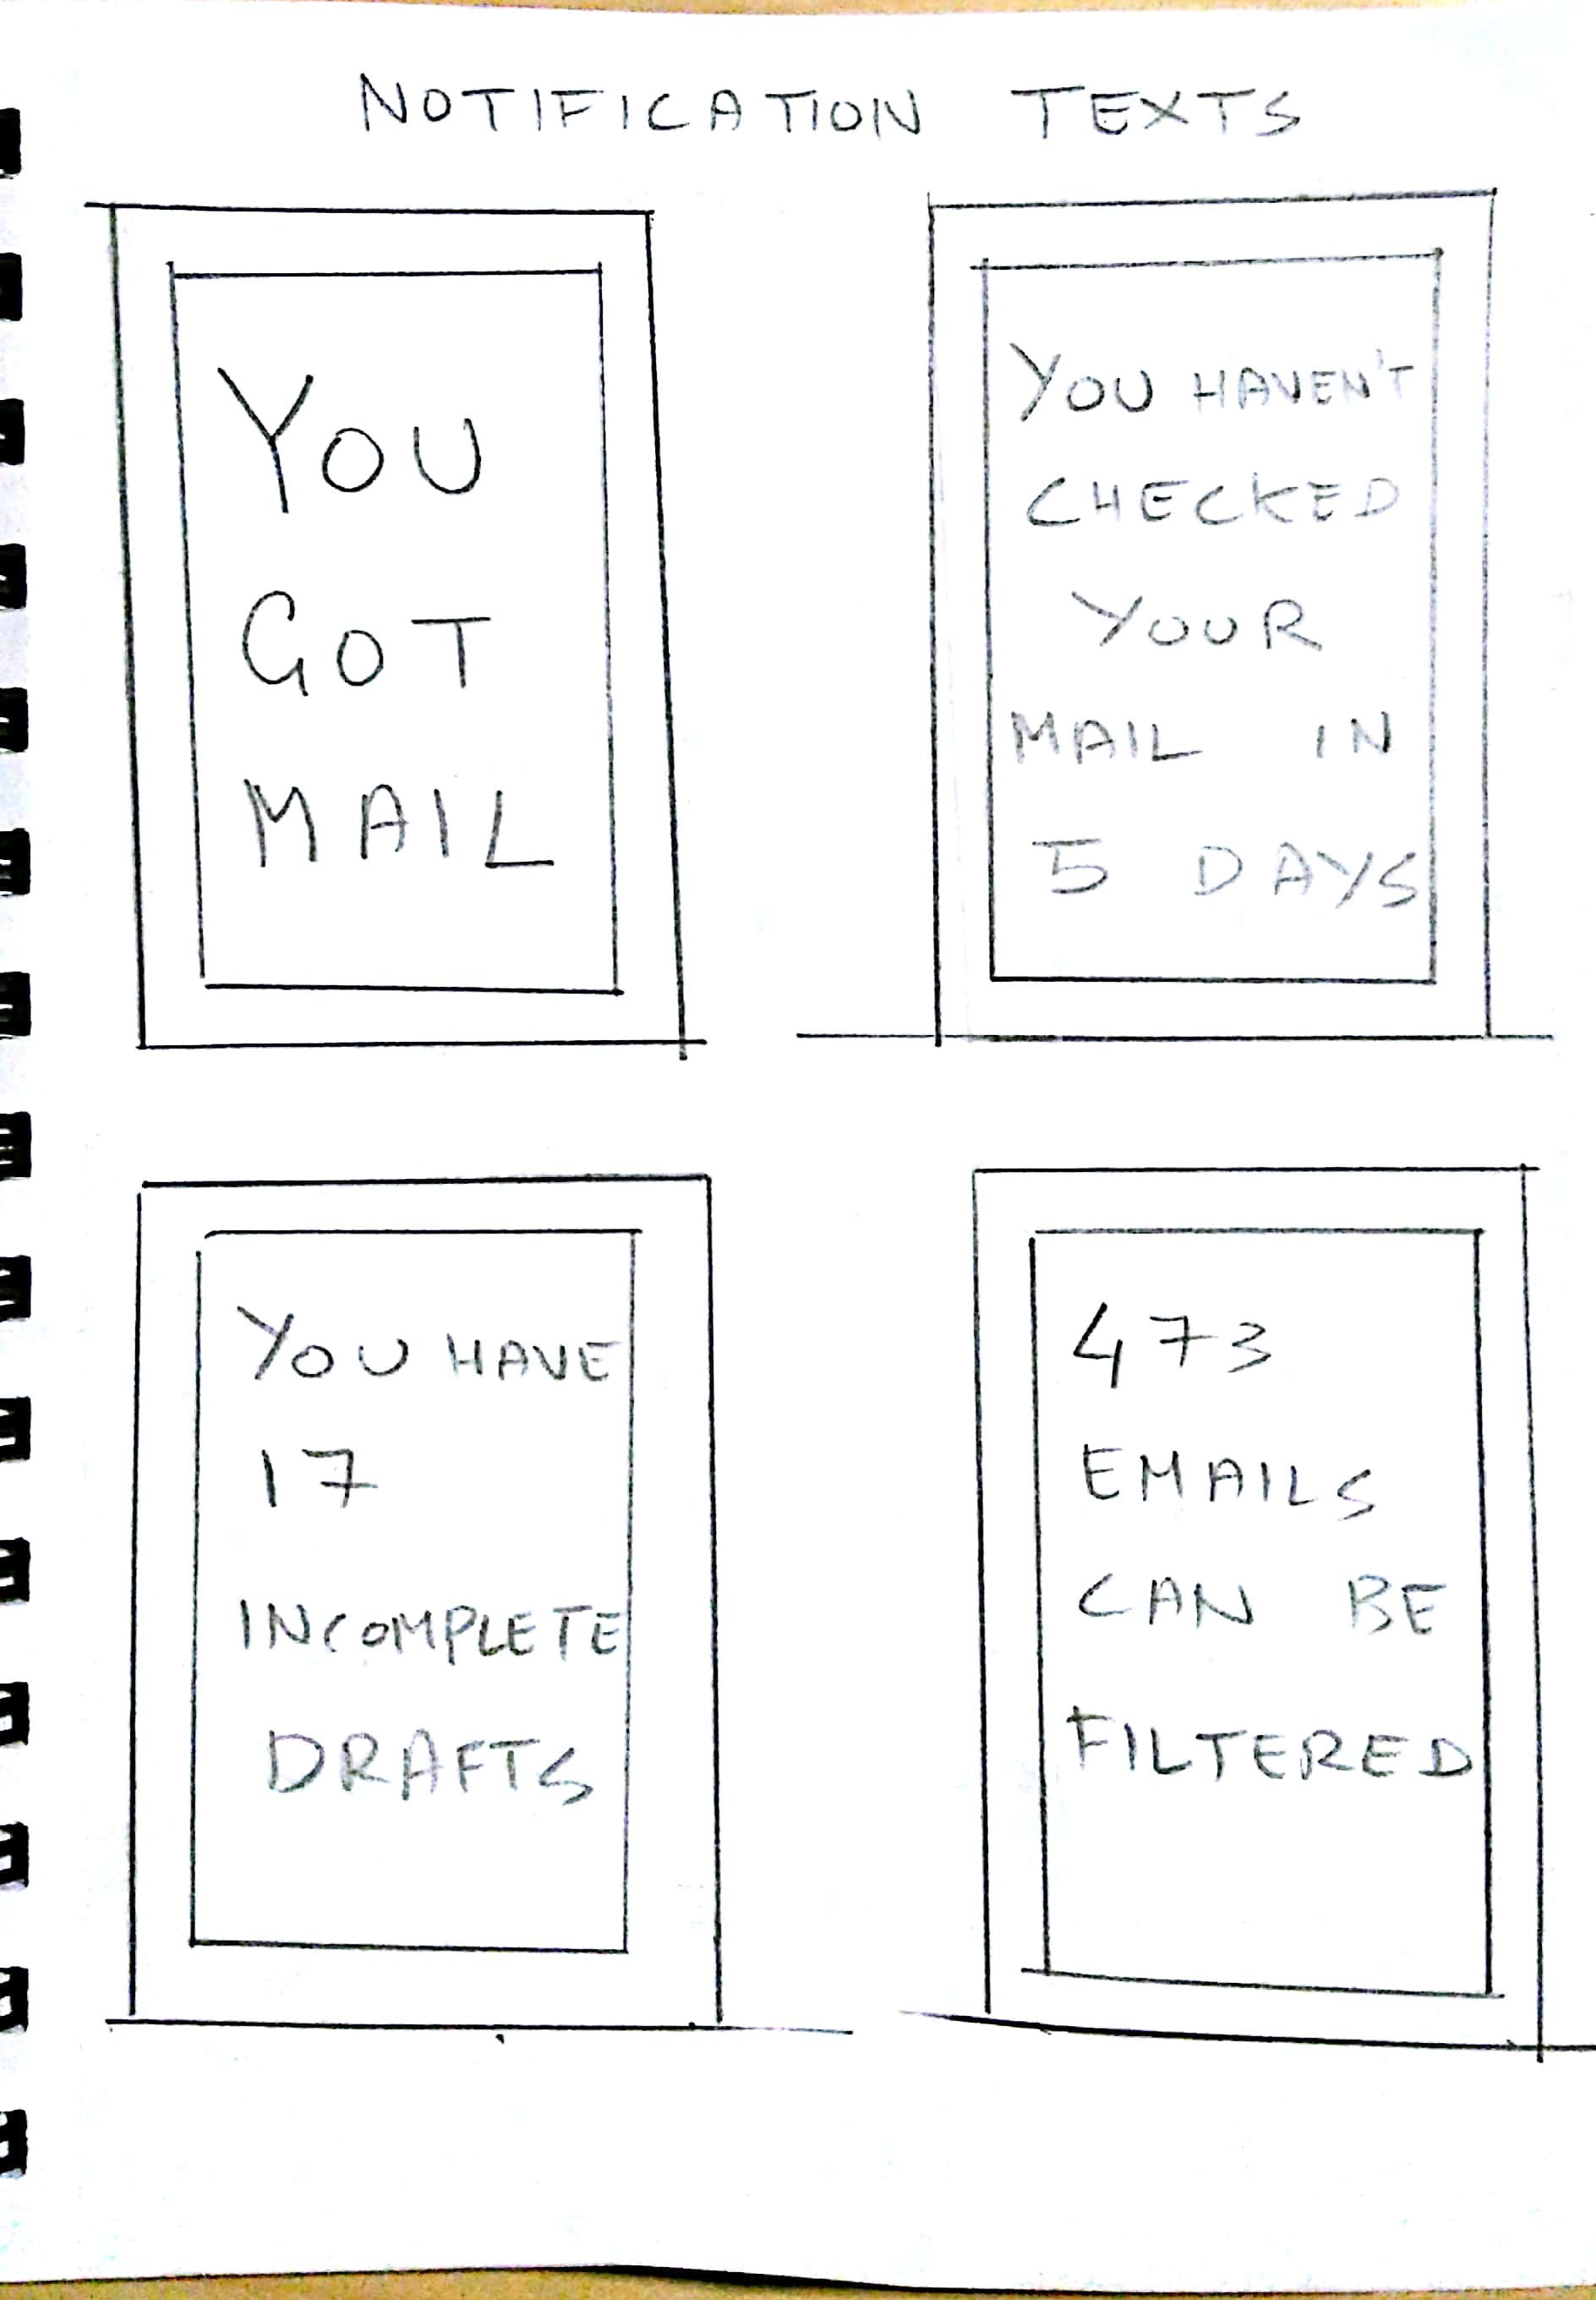 NOTIFICATION TEXTS
YOU
GOT
MAIL
YOU HAVEN'T
CHECKED
YOUR
MAIL IN
5 DAYS
YOU HAVE
17
INCOMPLETE
DRAFTS
473
EMAILS
CAN BE
FILTERED